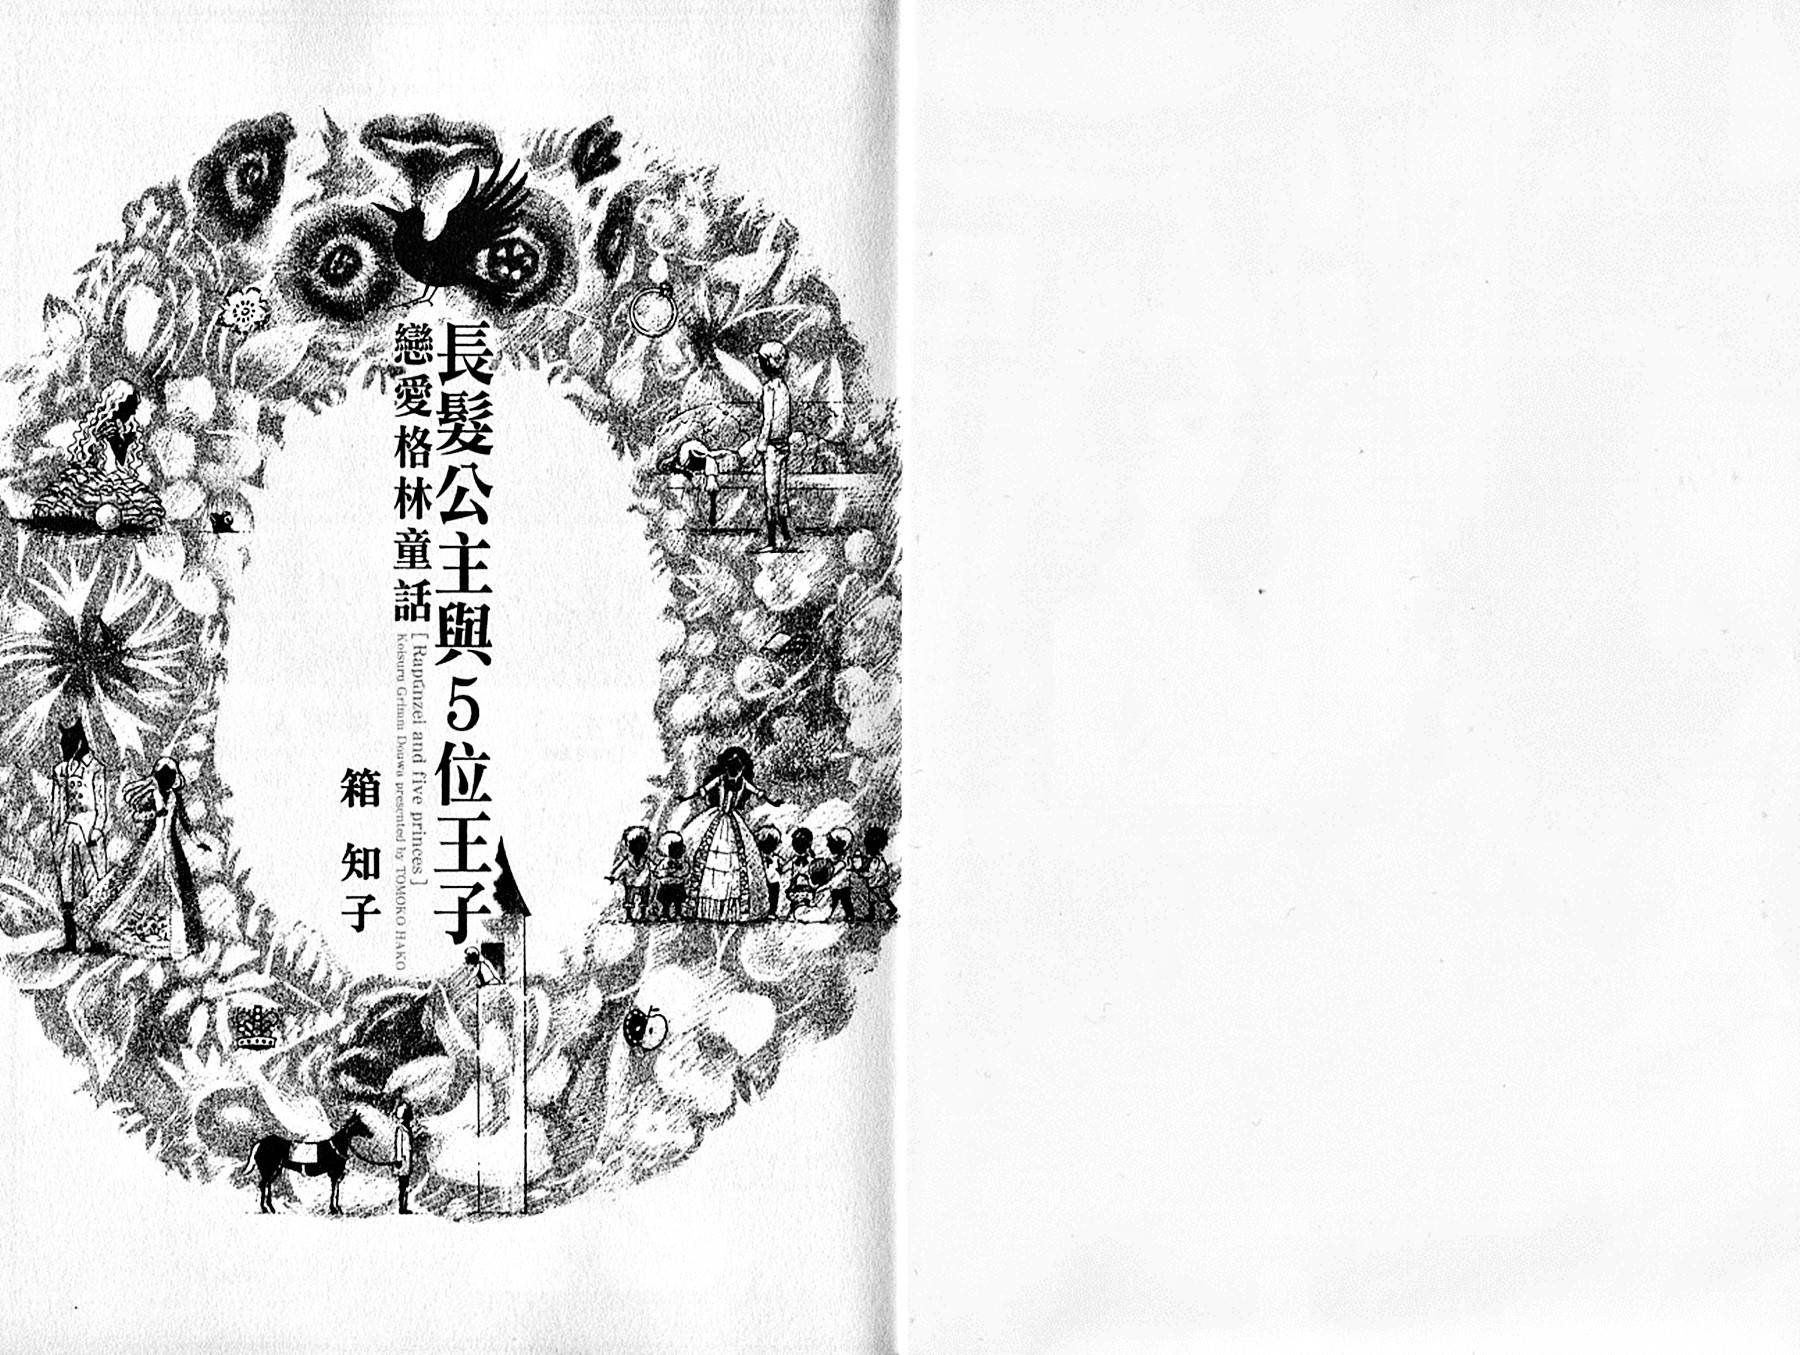 長髮公主與5位王子
戀愛格林童話
[ Rapunzel and five princes ]
Koisuru Grimm Douwa presented by TOMOKO HAKO
箱 知子